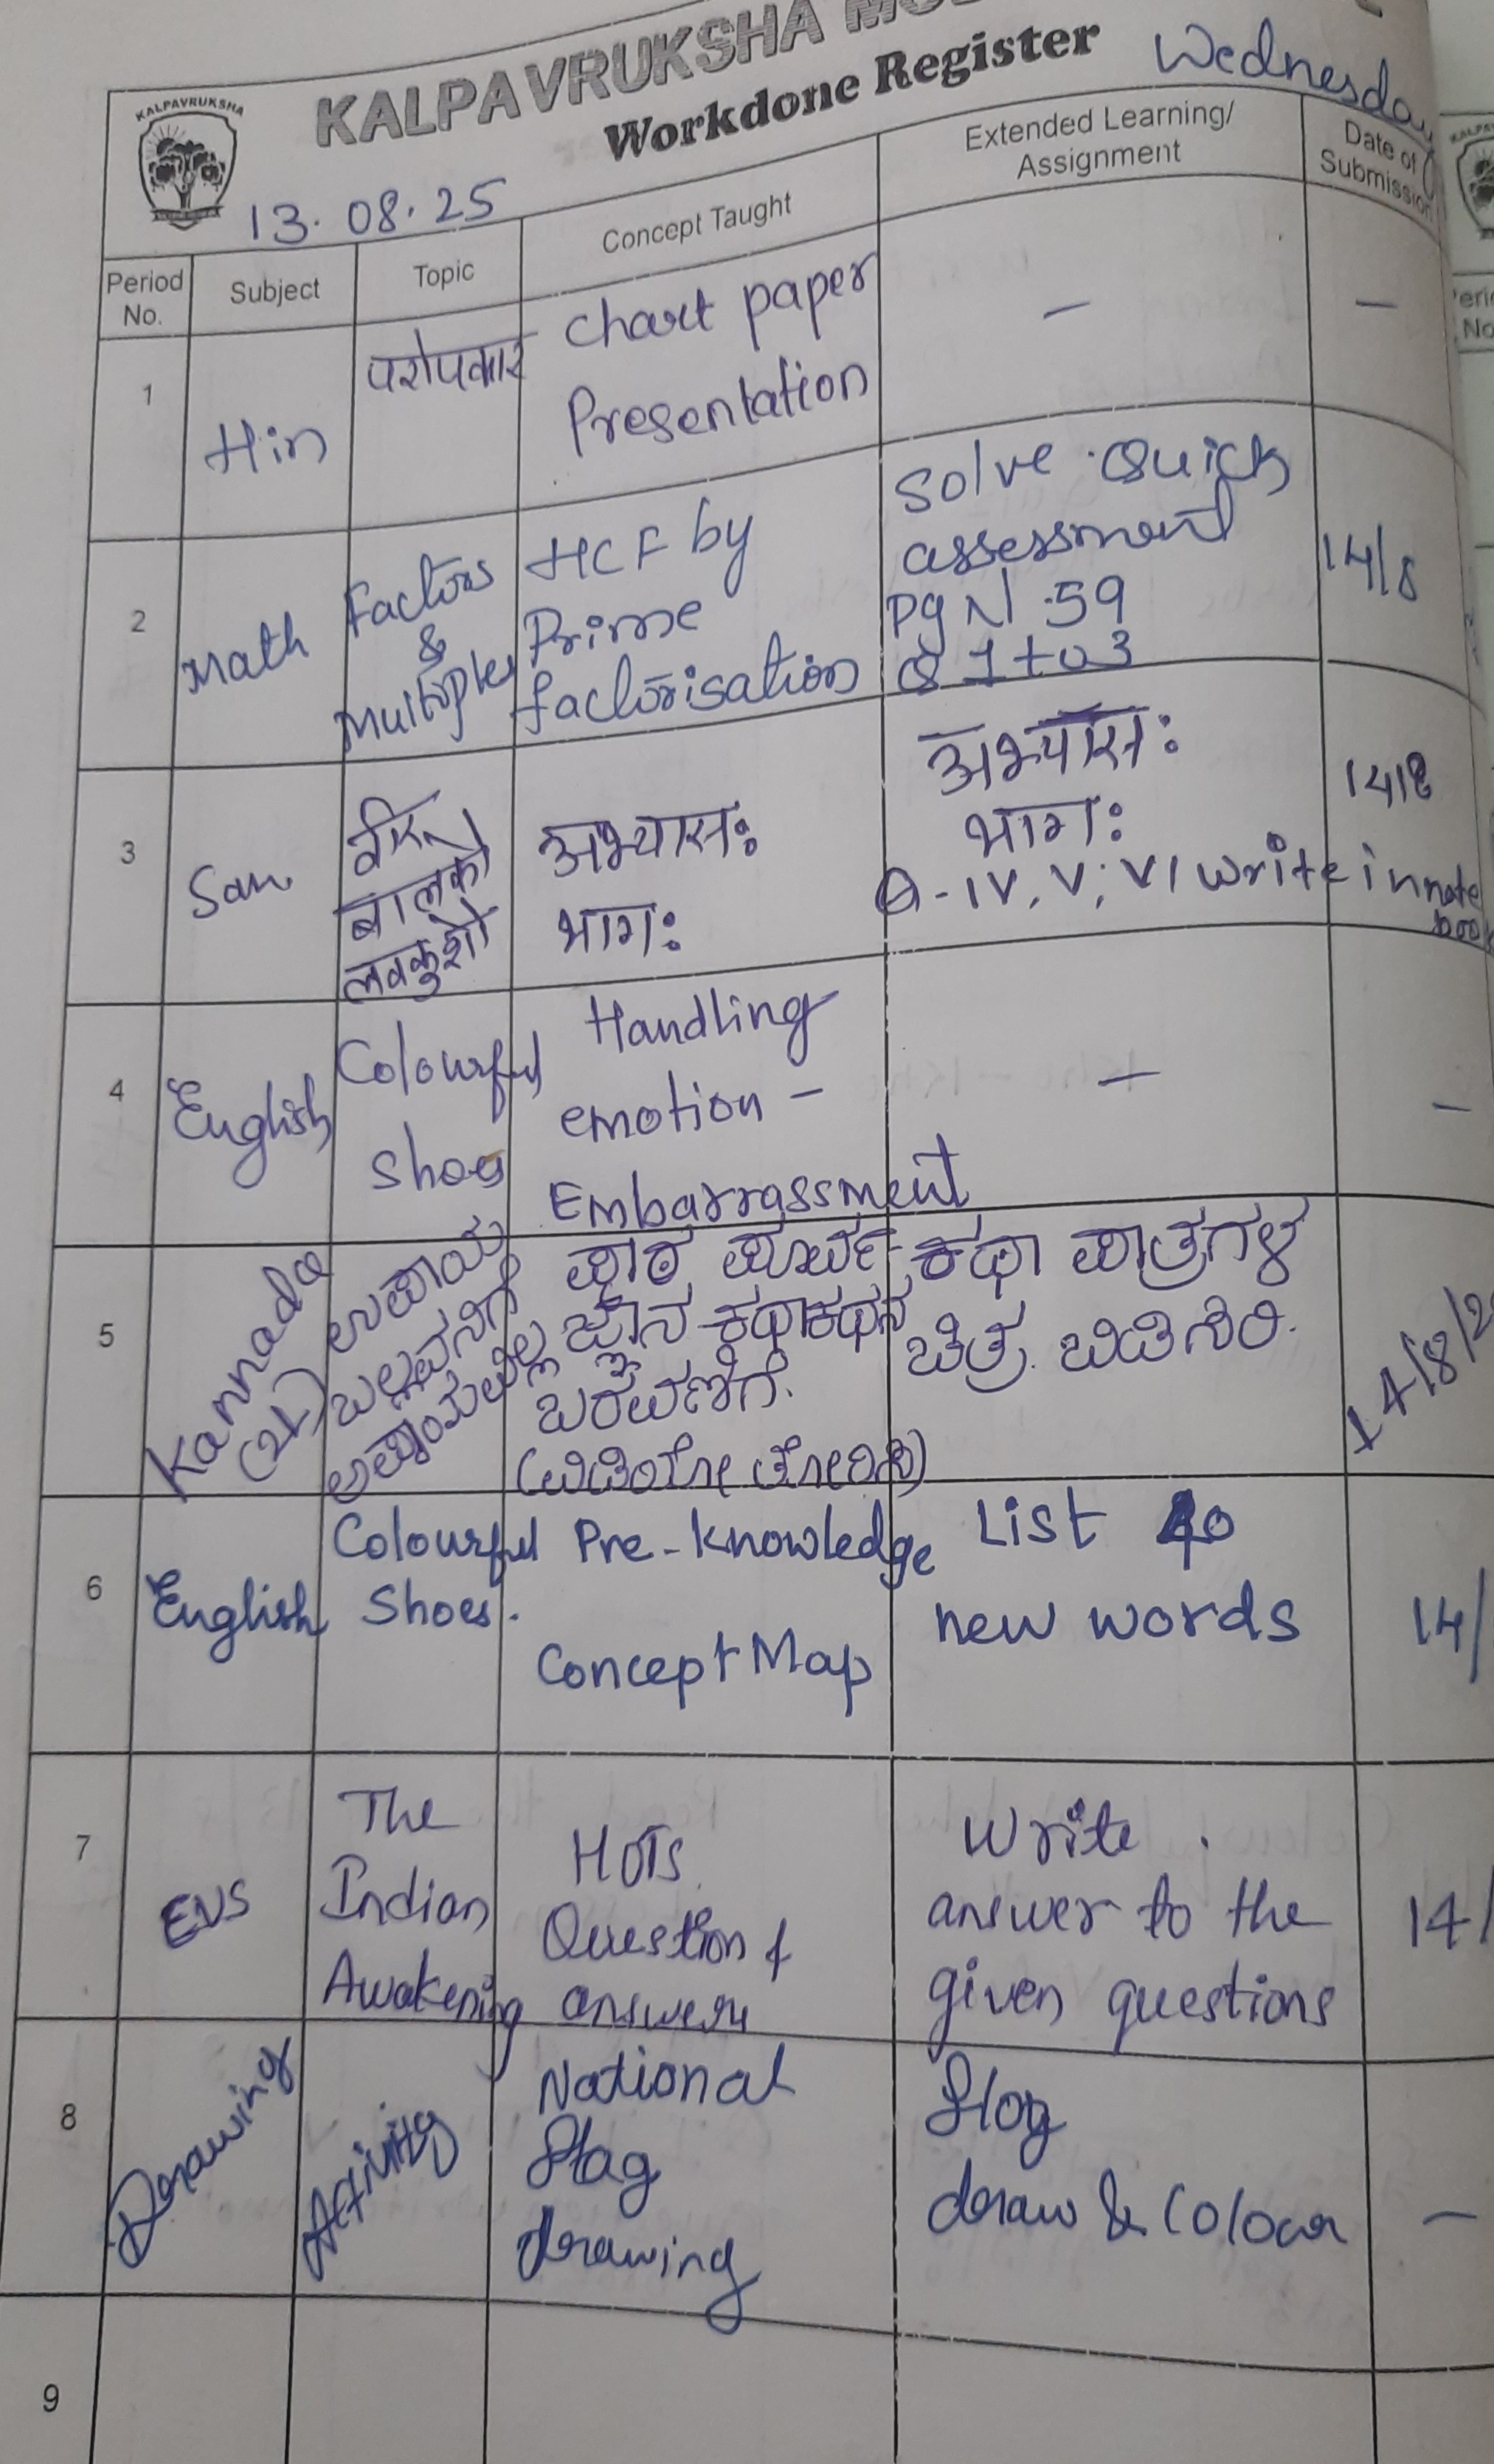 KALPAVRUKSHA
Workdone Register
Wednesday
KALPAVRUKSHA
13.08.25
Period No.
Subject
Topic
Concept Taught
Extended Learning/ Assignment
Date of Submission
1
Hin
परोपकार
chart paper
Presentation
—
—
2
Math
Factors
&
Multiples
HCF by
Prime
factorisation
Solve Quick
assessment
Pg N. 59
Q 1 to 3
14/8
3
San
वीर
बालकौ
लवकुशौ
अभ्यासः
भागः
अभ्यासः
भागः
Q - IV, V, VI write in note
book
14/8
4
English
Colourful
Shoes
Handling
emotion -
Embarrassment
—
—
5
Kannada
(2L)
ಉಪಾಯ
ಬಲ್ಲವನಿಗೆ
ಅಪಾಯವಿಲ್ಲ
ಪಾಠ ಪೂರ್ವ
ಜ್ಞಾನ ಕಥಾಕಥನ
ಬರೆವಣಿಗೆ.
ಕಥಾ ಪಾತ್ರಗಳ
ಚಿತ್ರ ಬಿಡಿಸಿರಿ.
14/8/2
6
English
Colourful
Shoes.
Pre-knowledge
Concept Map
List
new words
14/
7
EVS
The
Indian
Awakening
HOTs
Question &
answers
Write
answer to the
given questions
14/
8
Drawing
Activity
National
flag
drawing
flag
draw & Colour
—
9